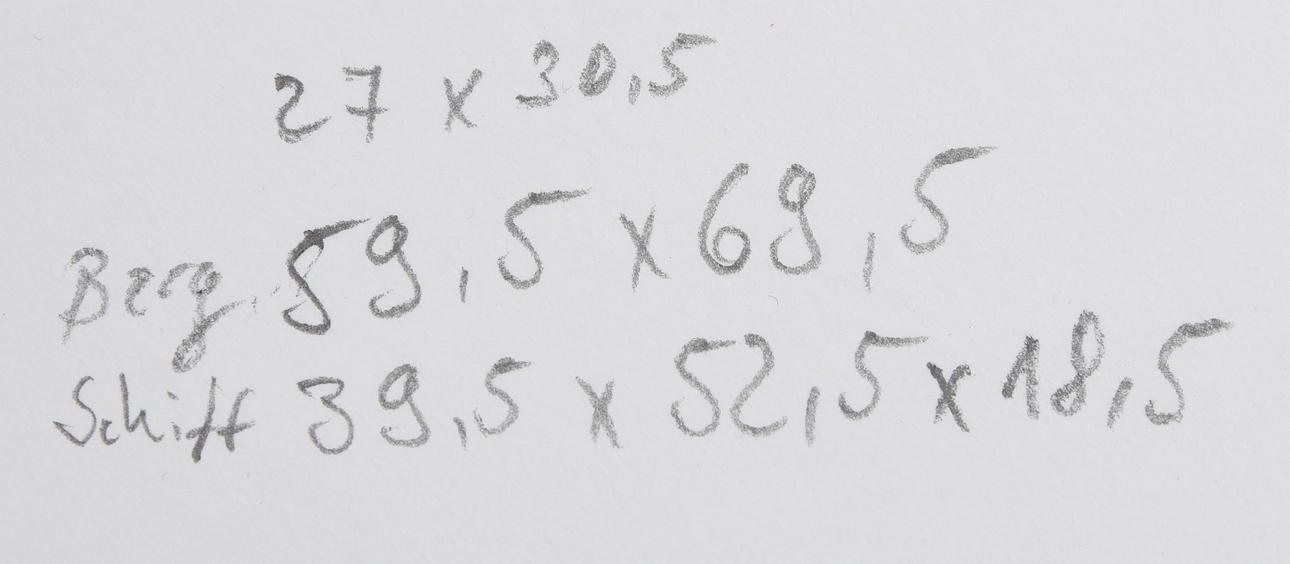 27 x 30,5
Berg. 59,5 x 69,5
Schiff 39,5 x 52,5 x 18,5